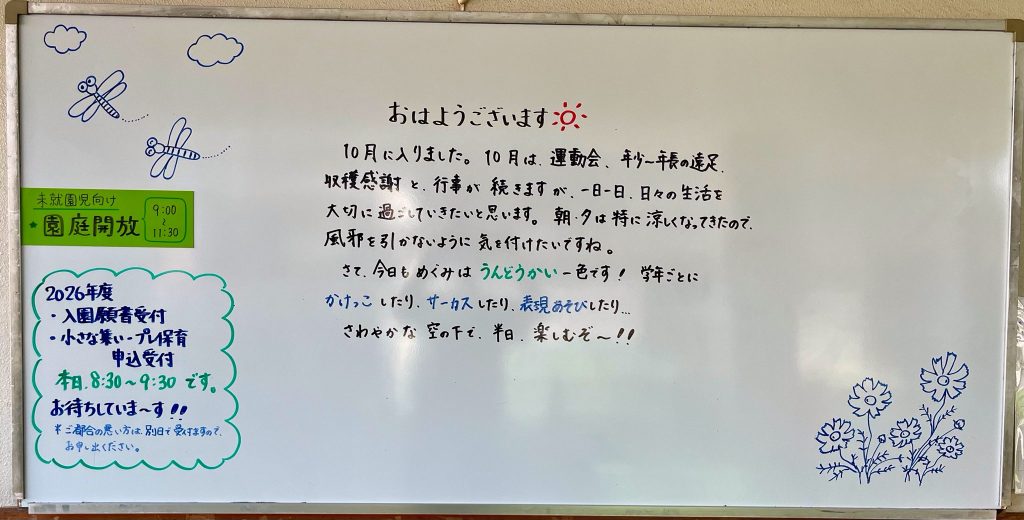 おはようございます
10月に入りました。10月は、運動会、年少〜年長の遠足、
収穫感謝と、行事が続きますが、一日一日、日々の生活を
大切に過ごしていきたいと思います。朝・夕は特に涼しくなってきたので、
風邪を引かないように気を付けたいですね。
さて、今日もめぐみはうんどうかい一色です！学年ごとに
かけっこしたり、サーカスしたり、表現あそびしたり…
さわやかな空の下で、半日、楽しむぞ〜!!
未就園児向け
★園庭開放
9:00
〜
11:30
2026年度
・入園願書受付
・小さな集い-プレ保育
申込受付
本日、8:30〜9:30です。
お待ちしていま〜す!!
＊ご都合の悪い方は、別日で受けますので、
お申し出ください。